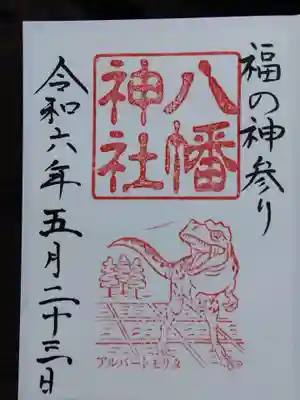 福の神参り
八幡
神社
令和六年五月二十三日
アルバートモリタ